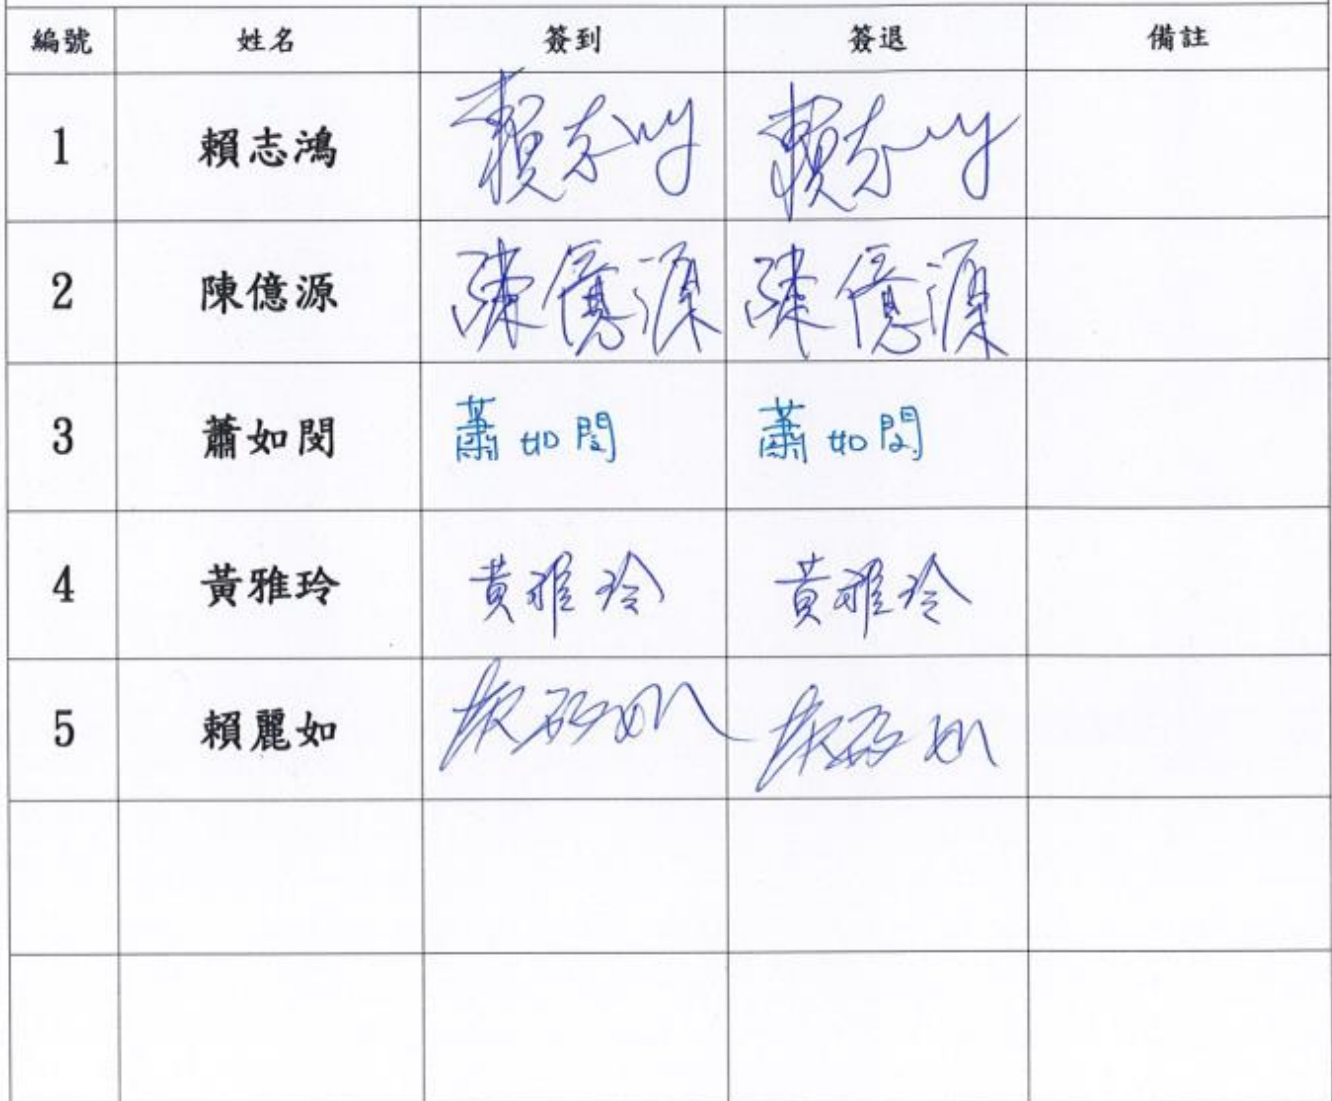 編號 姓名 簽到 簽退 備註
1 賴志鴻 賴志鴻 賴志鴻
2 陳億源 陳億源 陳億源
3 蕭如閔 蕭如閔 蕭如閔
4 黃雅玲 黃雅玲 黃雅玲
5 賴麗如